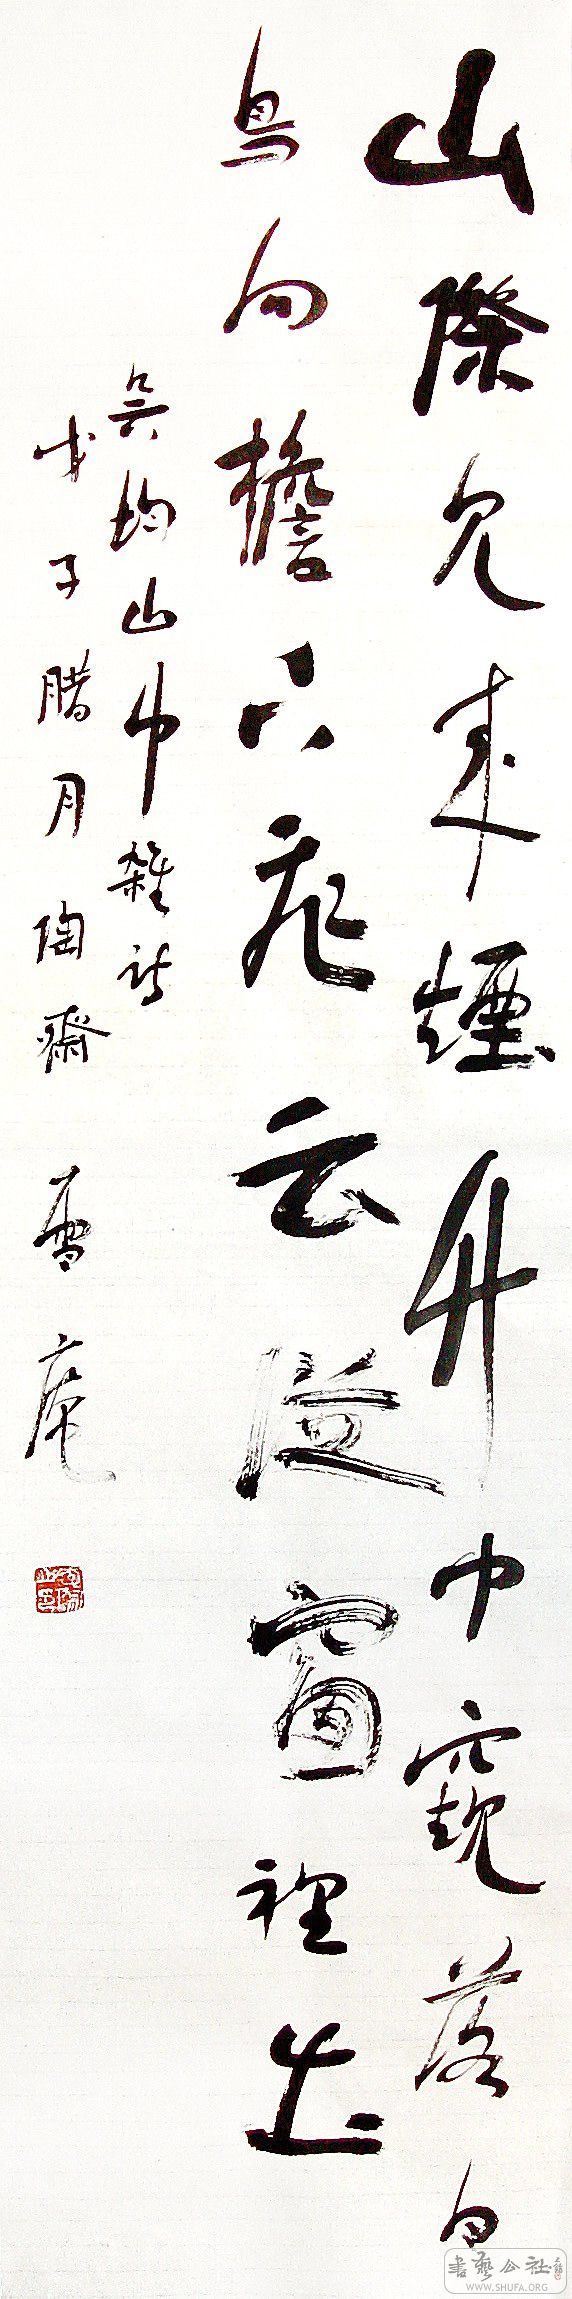 山際見来煙竹中窺落日
鳥向檐下飛云從窗裡出
吳均山中雜詩
戊子腊月陶齋 雪庵
書藝公社
WWW.SHUFA.ORG